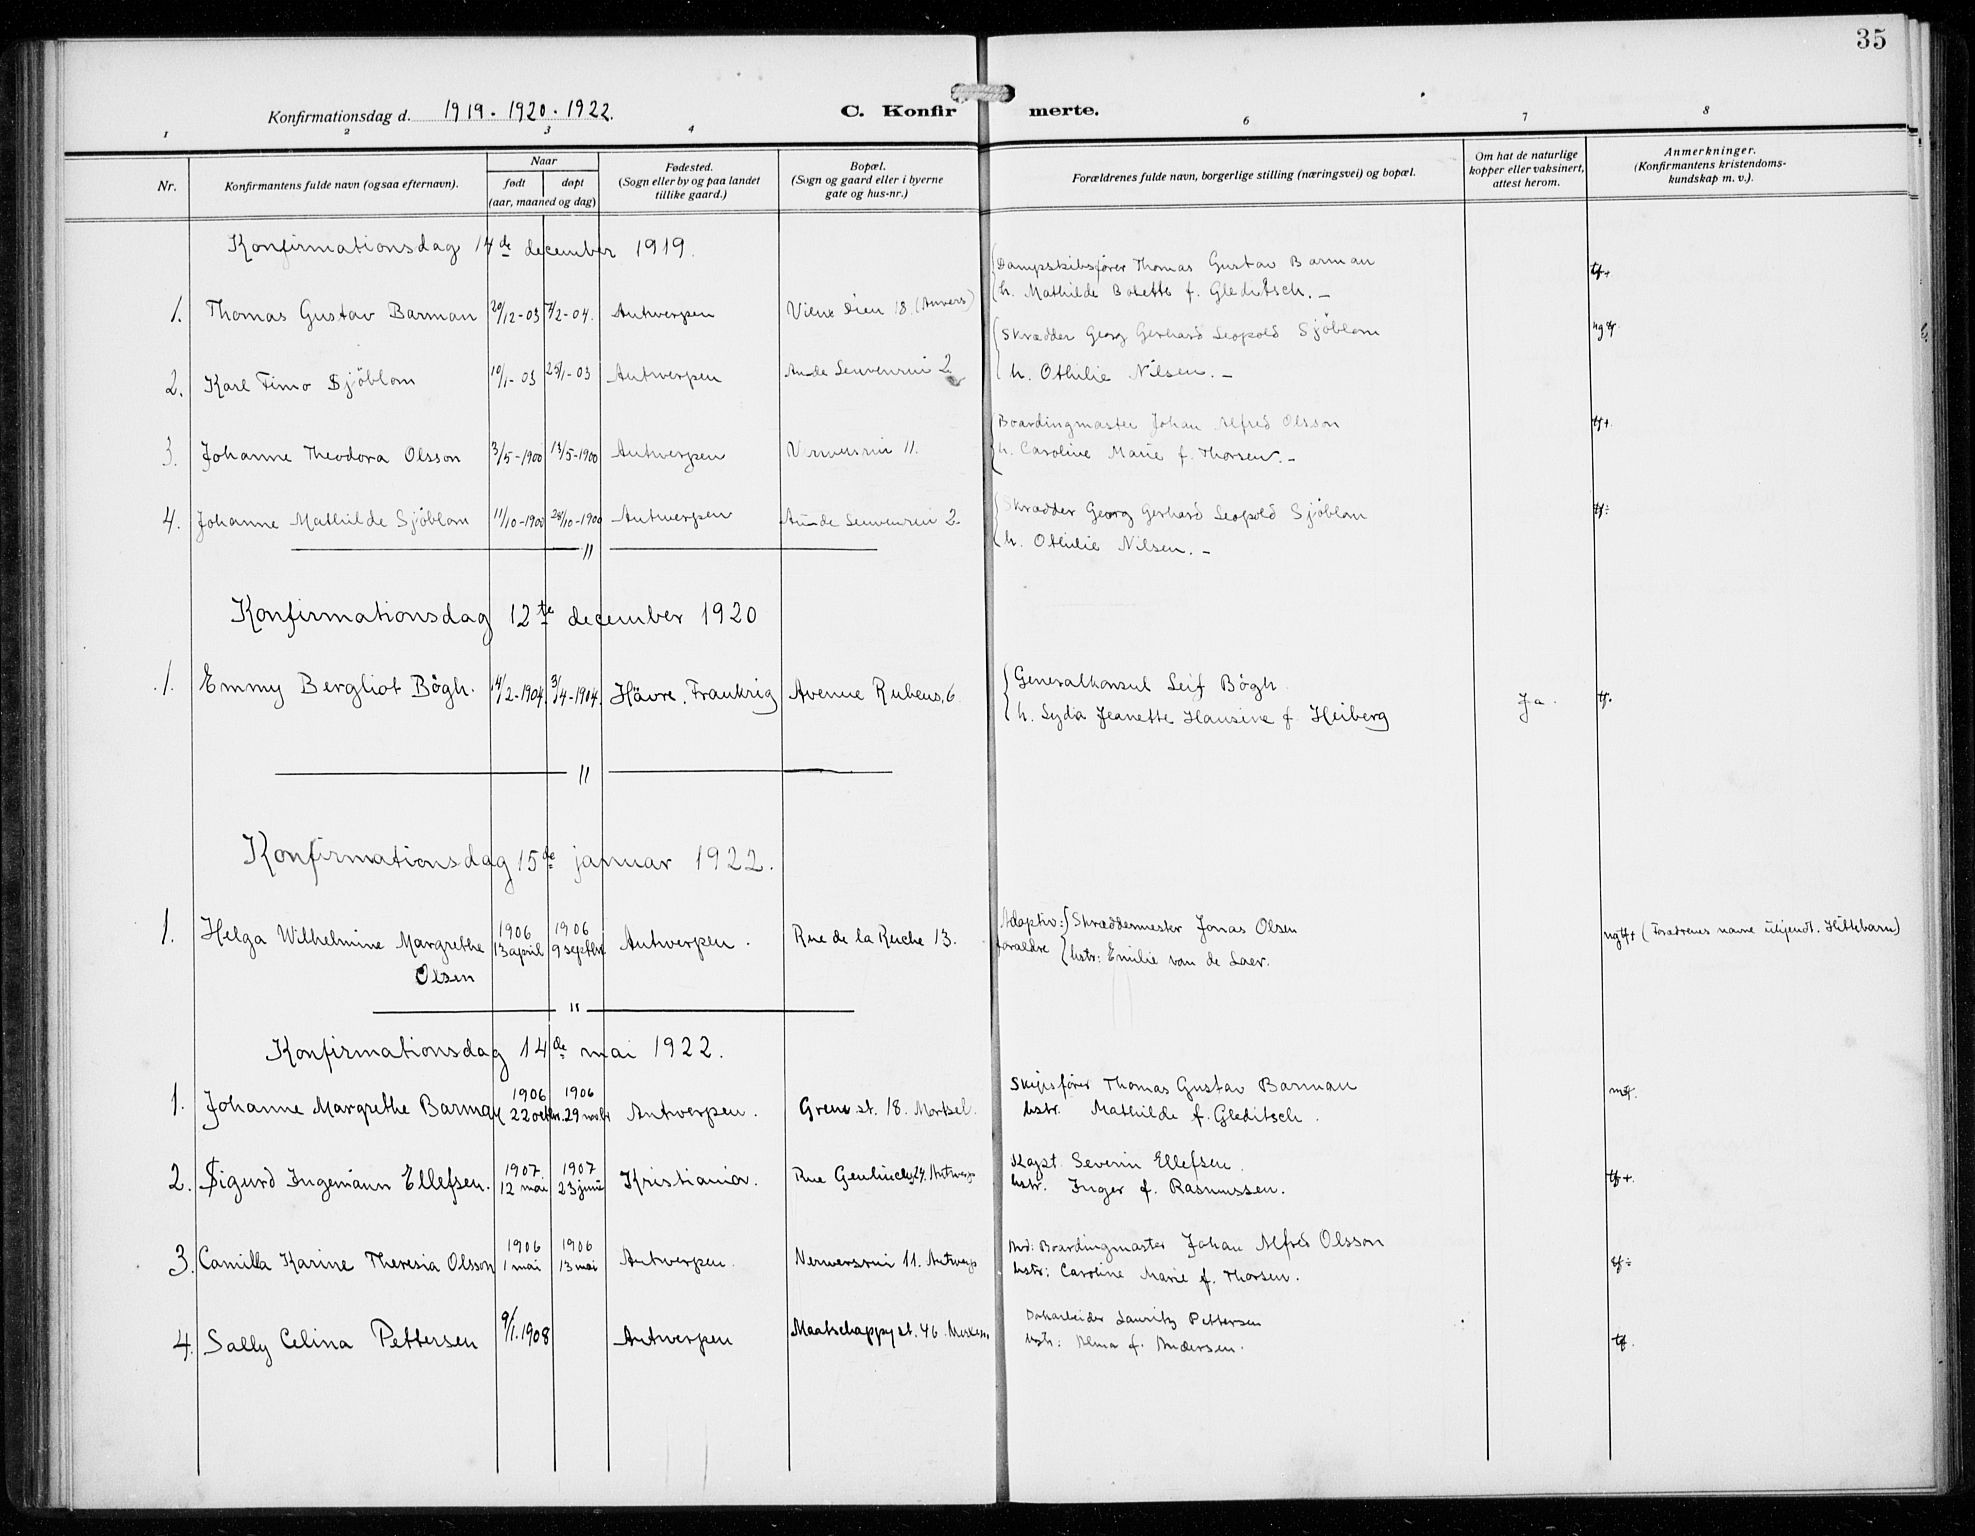 35
Konfirmationsdag d. 1919 . 1920 . 1922.
C. Konfirmerte.
1 2 3 4 6 7 8
Nr.
Konfirmantens fulde navn (ogsaa efternavn).
Naar
født døpt
(aar, maaned og dag)
Fødested.
(Sogn eller by og paa landet
tillike gaard.)
Bopæl.
(Sogn og gaard eller i byerne
gate og hus-nr.)
Forældrenes fulde navn, borgerlige stilling (næringsvei) og bopæl.
Om hat de naturlige
kopper eller vaksinert,
attest herom.
Anmerkninger.
(Konfirmantens kristendoms-
kundskap m. v.).
Konfirmationsdag 14de december 1919.
1. Thomas Gustav Barman 20/12-03 7/2-04. Antwerpen Vieux Dieu 18 (Anvers)
Dampskibsfører Thomas Gustav Barman
h. Mathilde Bolette f. Gleditsch. –
tf+
2. Karl Timo Sjöblom 10/1-03 25/1-03 Antwerpen
Skrædder Georg Gerhard Leopold Sjöblom
h. Othilie Nilsen. –
3. Johanne Theodora Olsson 3/5-1900 13/5-1900 Antwerpen Verversrui 11.
Boardingmaster Johan Alfred Olsson
h. Caroline Marie f. Thorsen. –
tf+
4. Johanne Mathilde Sjöblom 11/10-1900 28/10-1900 Antwerpen
Skrædder Georg Gerhard Leopold Sjöblom
h. Othilie Nilsen. –
tf÷
Konfirmationsdag 12te december 1920
1. Emmy Bergliot Bøgh. 14/2-1904. 3/4-1904. Hävre. Frankrig Avenue Rubens, 6
Generalkonsul Leif Bøgh
h. Lyda Jeanette Hansine f. Heiberg
Ja.
tf.
Konfirmationsdag 15de januar 1922.
1. Helga Wilhelmine Margrethe
Olsen
1906 1906
13 april 9 septbr Antwerpen. Rue de la Ruche 13.
Adoptiv: Skræddermester Jonas Olsen
forældre hstr: Emilie van de Laer.
ngtf+ (Forædrenes navne ukjendt. Hittebarn)
Konfirmationsdag 14de mai 1922.
1. Johanne Margrethe Barman 1906 1906
22 octbr. 29 novbr Antwerpen. Grens st. 18. Mortsel.
Skipsfører Thomas Gustav Barman
hstr. Mathilde f. Gleditsch.
2. Sigurd Ingemann Ellefsen. 1907 1907
12 mai 23 juni Kristiania. Rue 24. Antwerp
Kapt. Severin Ellefsen.
hstr. Inger f. Rasmussen.
tf+.
3. Camilla Karine Theresia Olsson 1906 1906
1 mai 13 mai Antwerpen. Verversrui 11. Antwerp
Boardingmaster Johan Alfred Olsson
hstr: Caroline Marie f. Thorsen.
tf÷
4. Sally Celina Pettersen 9/1. 1908 Antwerpen Maatschappy st. 46. Merxem
Dokarbeider Lauritz Pettersen
hstr: Alma f. Andersen.
tf.